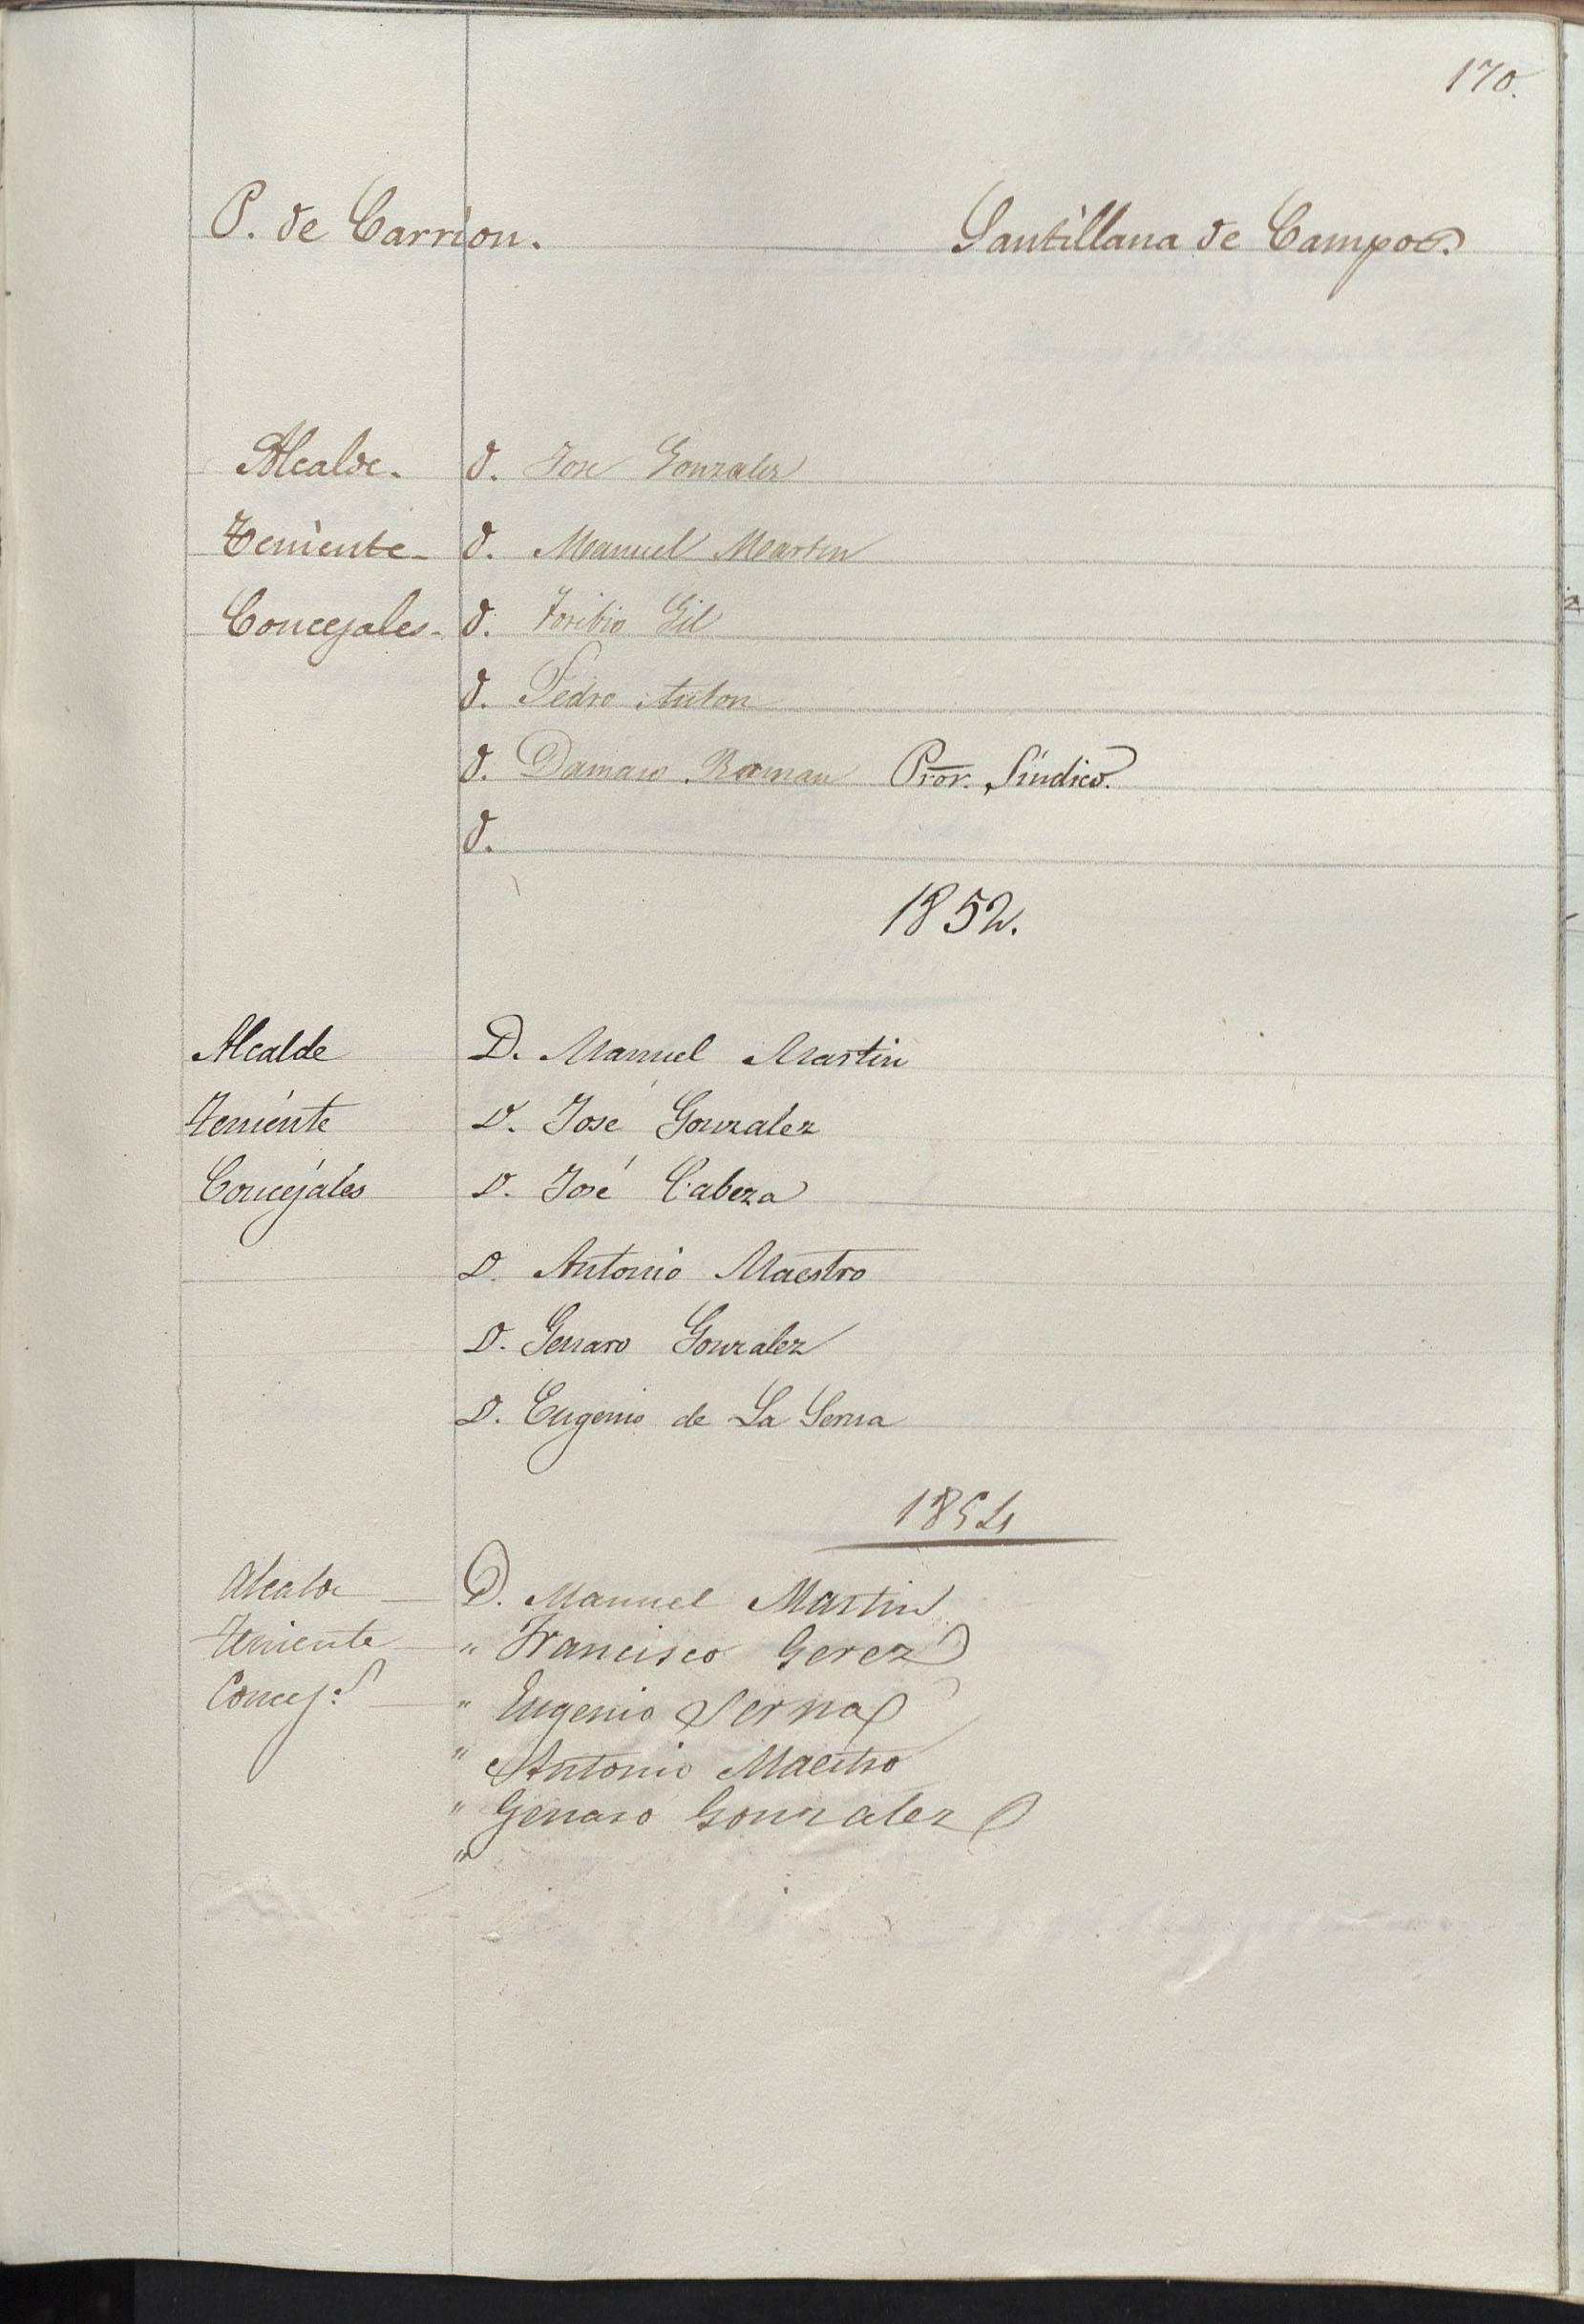 170.
P. de Carrion. Santillana de Campos.
Alcalde. D. Jose Gonzalez
Teniente D. Manuel Martin
Concejales. D. Toribio Gil
D. Pedro Anton
D. Damaso Roman Pror. Síndico.
D.
1852.
Alcalde D. Manuel Martin
Teniente D. José Gonzalez
Concejales D. José Cabeza
D. Antonio Maestro
D. Genaro Gonzalez
D. Eugenio de La Serna
1854
Alcalde D. Manuel Martin
Teniente " Francisco Gerez
Concej.s " Eugenio Serna
" Antonio Maestro
" Genaro Gonzalez
"